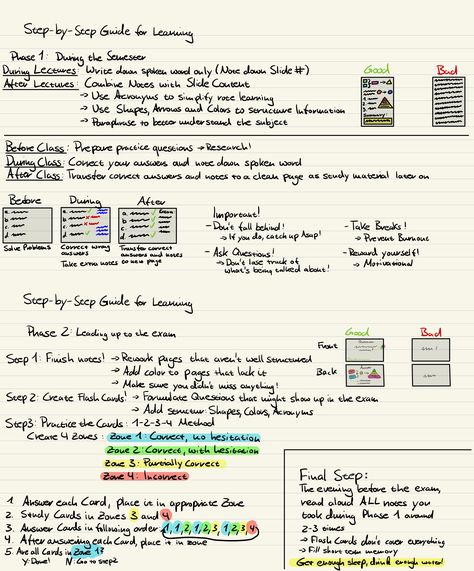 Step-by-Step Guide for Learning
Phase 1: During the Semester
During Lectures: Write down spoken word only (Note down Slide #)
After Lectures: Combine Notes with Slide Content
→ Use Acronyms to simplify rote learning
→ Use Shapes, Arrows and Colors to Structure Information
→ Paraphrase to better understand the subject
Good
Bad
Summary:
Before Class: Prepare practice questions → Research!
During Class: Correct your answers and note down spoken word
After Class: Transfer correct answers and notes to a clean page as study material later on
Before
During
After
a.
b.
c.
d.
a.
b.
c.
d.
a.
b.
c.
d.
Solve Problems
Correct wrong answers
Take extra notes
Transfer correct answers and notes to new page
Important!
- Don't fall behind!
→ If you do, catch up Asap!
- Ask Questions!
→ Don't lose track of what's being talked about!
- Take Breaks!
→ Prevent Burnout
- Reward yourself!
→ Motivational
Step-by-Step Guide for Learning
Phase 2: Leading up to the exam
Good
Bad
Front
Back
Step 1: Finish notes! → Rework pages that aren't well structured
→ Add color to pages that lack it
→ Make sure you didn't miss anything!
Step 2: Create Flash Cards! → Formulate Questions that might show up in the exam
→ Add structure: Shapes, Colors, Acronyms
Step3: Practice the Cards: 1-2-3-4 Method
Create 4 Zones: Zone 1: Correct, no hesitation
Zone 2: Correct, with hesitation
Zone 3: Partially Correct
Zone 4: Incorrect
1 Answer each Card, place it in appropriate Zone
2. Study Cards in Zones 3 and 4
3. Answer Cards in following order 1,1,2,1,2,3,1,2,3,4
4. After answering each Card, place it in zone
5. Are all Cards in Zone 1?
Y: Done! N: Go to step2
Final Step:
The evening before the exam,
read aloud ALL notes you
took during Phase 1 around
2-3 times
→ Flash Cards don't cover everything
→ Fill short term memory
Get enough sleep, drink enough water!